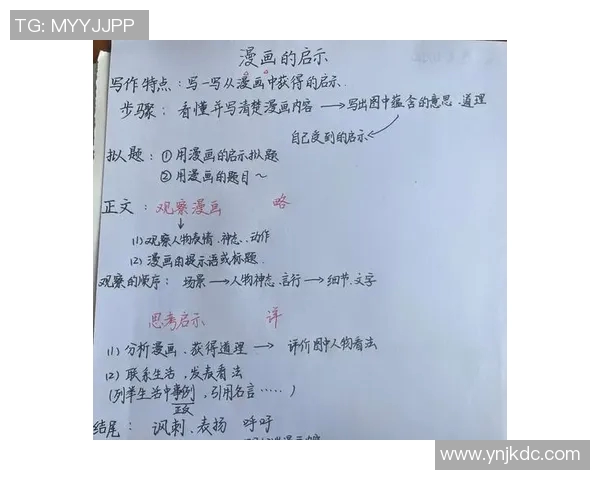 TG: MYYJJPP
漫画的启示
写作特点：写一写从漫画中获得的启示.
步骤：看懂并写清楚漫画内容→写出图中蕴含的意思、道理
自己受到的启示
拟题：①用漫画的启示拟题
②用漫画的题目～
正文：观察漫画 略
(1)观察人物表情、神态、动作
(2)漫画由提示语或标题.
观察的顺序：场景→人物神态、言行→细节、文字
思考启示 详
(1)分析漫画、获得道理→评价图中人物看法
(2)联系生活，发表看法
(列举生活中事例，引用名言……)
正反
结尾：讽刺、表扬 呼吁
www.ynjkdc.com